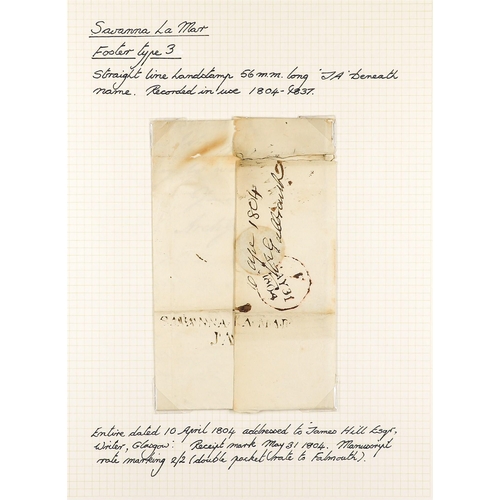 Savanna La Mar
Foster type 3
Straight line handstamp 56 m.m. long 'JA' beneath
name. Recorded in use 1804-1837.
1804
SAVANNA LA MAR
JA
Entire dated 10 April 1804 addressed to 'James Hill Esqr,
Writer, Glasgow'. Receipt mark May 31 1804. Manuscript
rate marking 2/2 (double packet rate to Falmouth).